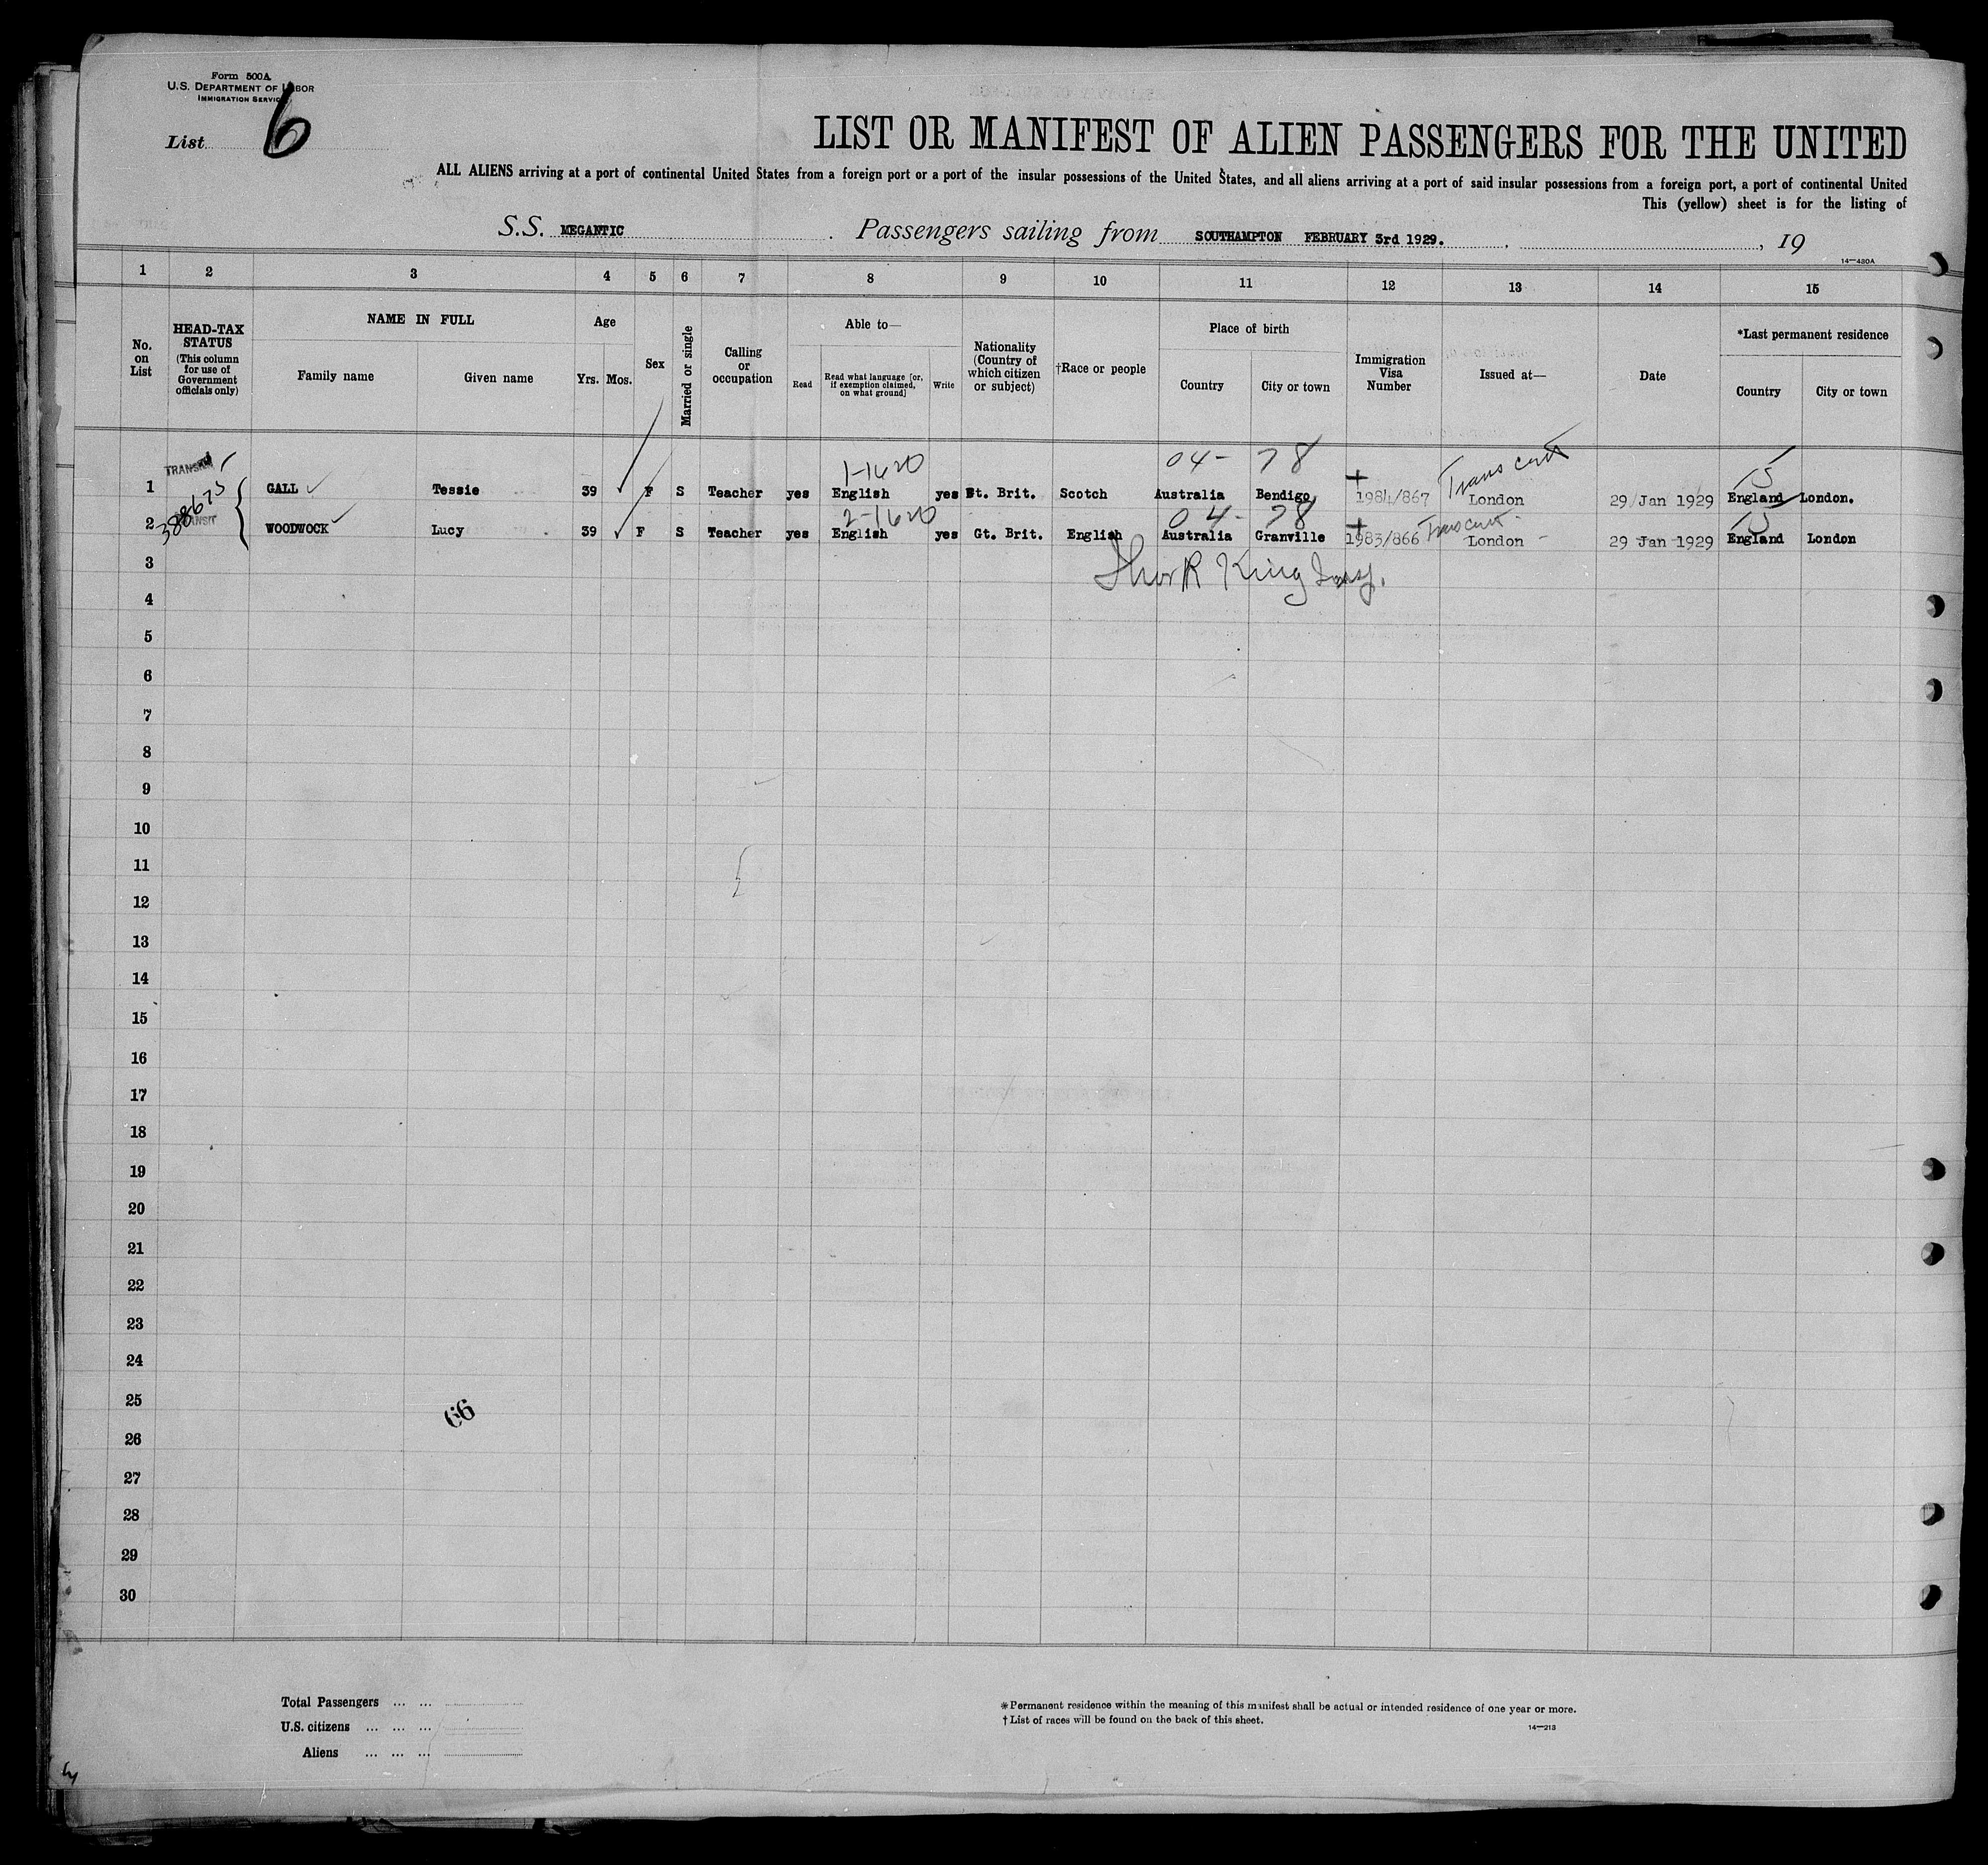 Form 500A
U.S. DEPARTMENT OF LABOR
IMMIGRATION SERVICE
List 6
LIST OR MANIFEST OF ALIEN PASSENGERS FOR THE UNITED
ALL ALIENS arriving at a port of continental United States from a foreign port or a port of the insular possessions of the United States, and all aliens arriving at a port of said insular possessions from a foreign port, a port of continental United
This (yellow) sheet is for the listing of
S.S. MEGANTIC. Passengers sailing from SOUTHAMPTON FEBRUARY 3rd 1929. , 19
14—480A
1 2 3 4 5 6 7 8 9 10 11 12 13 14 15
No. on List
HEAD-TAX STATUS (This column for use of Government officials only)
NAME IN FULL
Family name Given name
Age
Yrs. Mos.
Sex
Married or single
Calling or occupation
Able to—
Read
Read what language [or, if exemption claimed, on what ground]
Write
Nationality (Country of which citizen or subject)
†Race or people
Place of birth
Country City or town
Immigration Visa Number
Issued at—
Date
*Last permanent residence
Country City or town
TRANSIT 1-1620 04- 78
1 GALL Tessie 39 F S Teacher yes English yes Gt. Brit. Scotch Australia Bendigo 1984/867 London 29 Jan 1929 England London.
388675
TRANSIT 2-1620 04- 78
2 WOODWOCK Lucy 39 F S Teacher yes English yes Gt. Brit. English Australia Granville 1983/866 London 29 Jan 1929 England London
3
4
5
6
7
8
9
10
11
12
13
14
15
16
17
18
19
20
21
22
23
24
25
66
26
27
28
29
30
Total Passengers ... ...
U.S. citizens ... ... ...
Aliens ... ... ...
*Permanent residence within the meaning of this manifest shall be actual or intended residence of one year or more.
†List of races will be found on the back of this sheet.
14—213